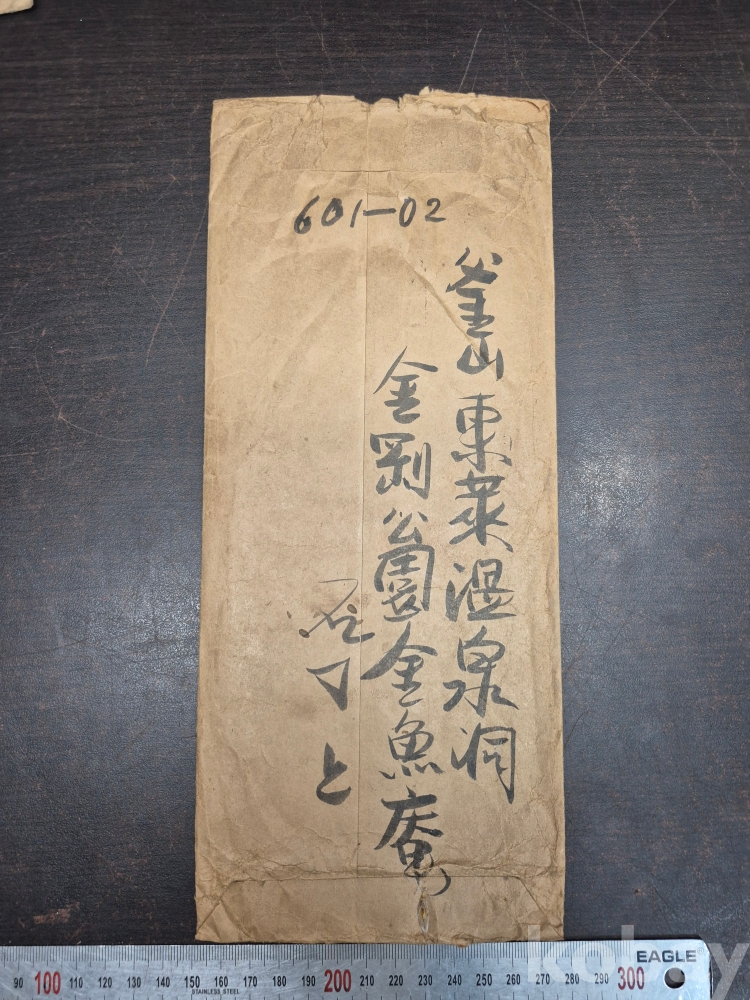 601-02
釜山東萊温泉洞
金剛公園金魚庵
石丁上
kobay
EAGLE
90 100 110 120 130 140 150 160 170 180 190 200 210 220 230 240 250 260 270 280 290 300
STAINLESS STEEL